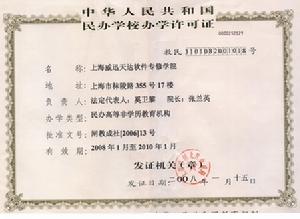 中华人民共和国
民办学校办学许可证
名称：上海威迅天达软件专修学院
地址：上海市林陵路355号17楼
负责人：法定代表人：奚卫黎 院长：张兰英
办学类型：民办高等非学历教育机构
批准文号：闸教成社[2006]13号
有效期：2008年1月至2010年1月
发证机关(章)
发证日期：二〇〇八年一月十五日